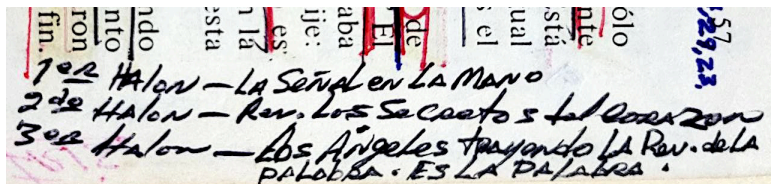 ólo
stá
nte
ual
s el
de
El
aba
ije:
es
n la
esta
ndo
nto
ron
fin.
57
29, 23,
1er HAlon – LA SeñAL en LA MAno
2do HAlon – Rev. Los Secretos del corazon
3er HAlon – Los Ángeles trayendo LA Rev. de LA
PALABRA. ES LA PALABRA.